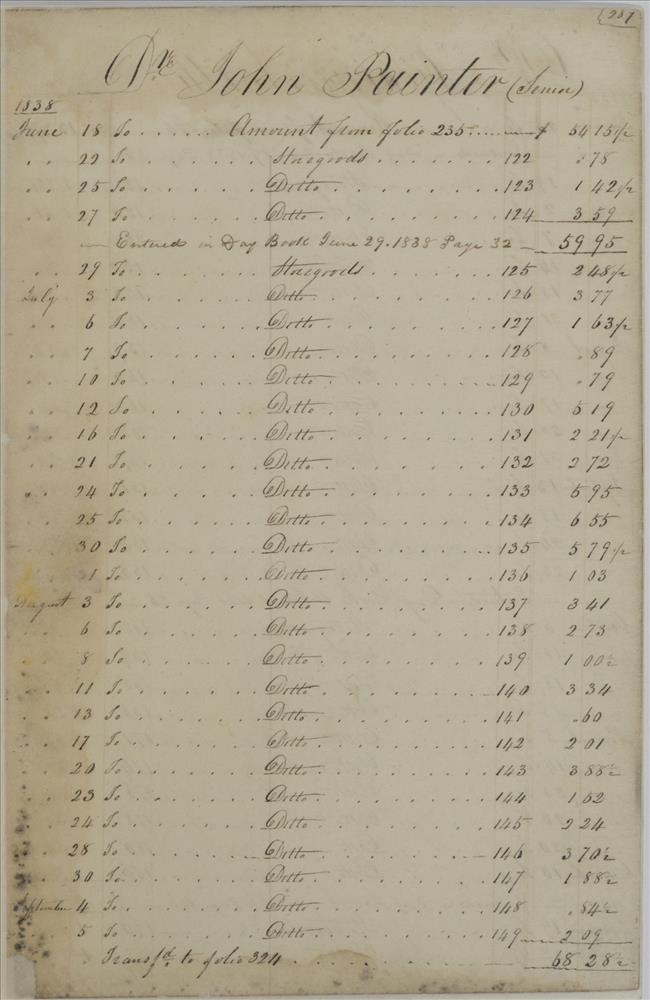 287
Dr. John Painter (Senior)
1838
June 18 To . . . . . . Amount from folio 235 . . . . . . $ 54 15 1/2
" " 22 To . . . . . . Storegoods . . . . . . . 122 . 78
" " 25 To . . . . . . Ditto . . . . . . . . 123 1 42 1/2
" " 27 To . . . . . . Ditto . . . . . . . . 124 3 59
— Entered in Day Book June 29. 1838 Page 32 — 59 95
" " 29 To . . . . . . Storegoods . . . . . . . 125 2 48 1/2
July 3 To . . . . . . Ditto . . . . . . . . 126 3 77
" " 6 To . . . . . . Ditto . . . . . . . . 127 1 63 1/2
" " 7 To . . . . . . Ditto . . . . . . . . 128 . 89
" " 10 To . . . . . . Ditto . . . . . . . . 129 . 79
" " 12 To . . . . . . Ditto . . . . . . . . 130 5 19
" " 16 To . . . . . . Ditto . . . . . . . . 131 2 21 1/2
" " 21 To . . . . . . Ditto . . . . . . . . 132 2 72
" " 24 To . . . . . . Ditto . . . . . . . . 133 5 95
" " 25 To . . . . . . Ditto . . . . . . . . 134 6 55
30 To . . . . . . Ditto . . . . . . . . 135 5 79 1/2
1 To . . . . . . Ditto . . . . . . . . 136 1 03
August 3 To . . . . . . Ditto . . . . . . . . 137 3 41
" " 6 To . . . . . . Ditto . . . . . . . . 138 2 73
" " 8 To . . . . . . Ditto . . . . . . . . 139 1 00 1/2
" " 11 To . . . . . . Ditto . . . . . . . . 140 3 34
" " 13 To . . . . . . Ditto . . . . . . . . 141 . 60
" " 17 To . . . . . . Ditto . . . . . . . . 142 2 01
" " 20 To . . . . . . Ditto . . . . . . . . 143 3 88 1/2
" " 23 To . . . . . . Ditto . . . . . . . . 144 1 52
" " 24 To . . . . . . Ditto . . . . . . . . 145 2 24
" " 28 To . . . . . . Ditto . . . . . . . . 146 3 70 1/2
" " 30 To . . . . . . Ditto . . . . . . . . 147 1 88 1/2
September 4 To . . . . . . Ditto . . . . . . . . 148 . 84 1/2
" " 5 To . . . . . . Ditto . . . . . . . . 149 2 09
Transfd. to folio 324 . . . . . . . . . . 68 28 1/2